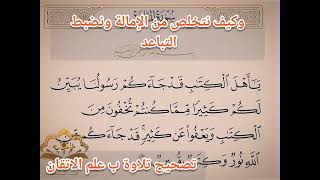 وكيف نتخلص من الإمالة ونضبط
التباعد
يَٰٓأَهْلَ ٱلْكِتَٰبِ قَدْ جَآءَكُمْ رَسُولُنَا يُبَيِّنُ
لَكُمْ كَثِيرًا مِّمَّا كُنتُمْ تُخْفُونَ مِنَ
ٱلْكِتَٰبِ وَيَعْفُوا۟ عَن كَثِيرٍ ۚ قَدْ جَآءَكُم مِّنَ
ٱللَّهِ نُورٌ وَكِتَٰبٌ
تصحيح تلاوة ب علم الاتقان